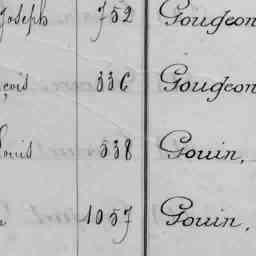 Joseph 752 Gougeon
çois 336 Gougeon
Louis 538 Gouin,
1057 Gouin,